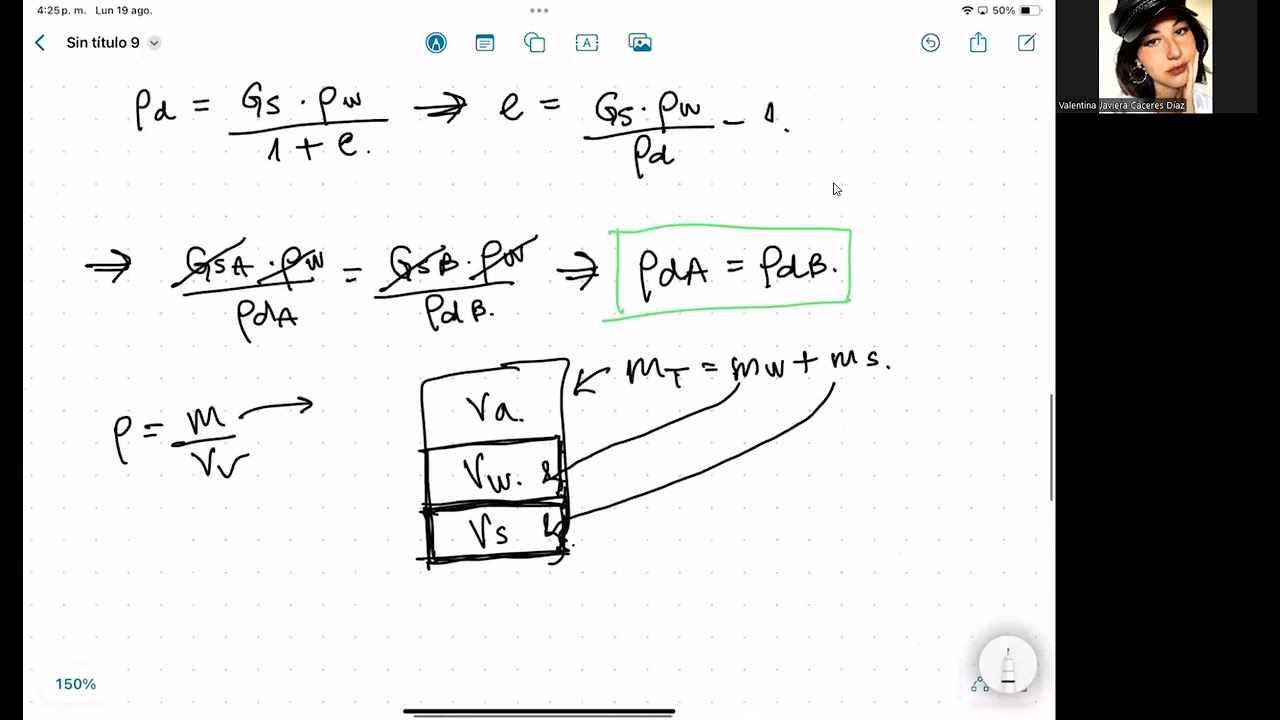 4:25 p. m. Lun 19 ago.
50%
Sin título 9
Valentina Javiera Cáceres Díaz
ρd = Gs · ρw / 1 + e. ⇒ e = Gs · ρw / ρd - 1.
⇒ GsA · ρw / ρdA = GsB · ρw / ρdB. ⇒ ρdA = ρdB.
mT = mw + ms.
Va.
ρ = m / Vv
Vw.
Vs
150%